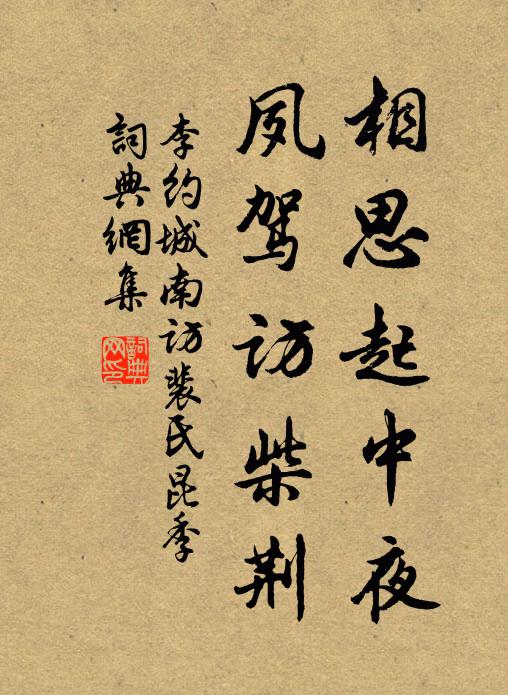 相思起中夜
夙驾访柴荆
李约城南访裴氏昆季
詞典網集
詞典网印